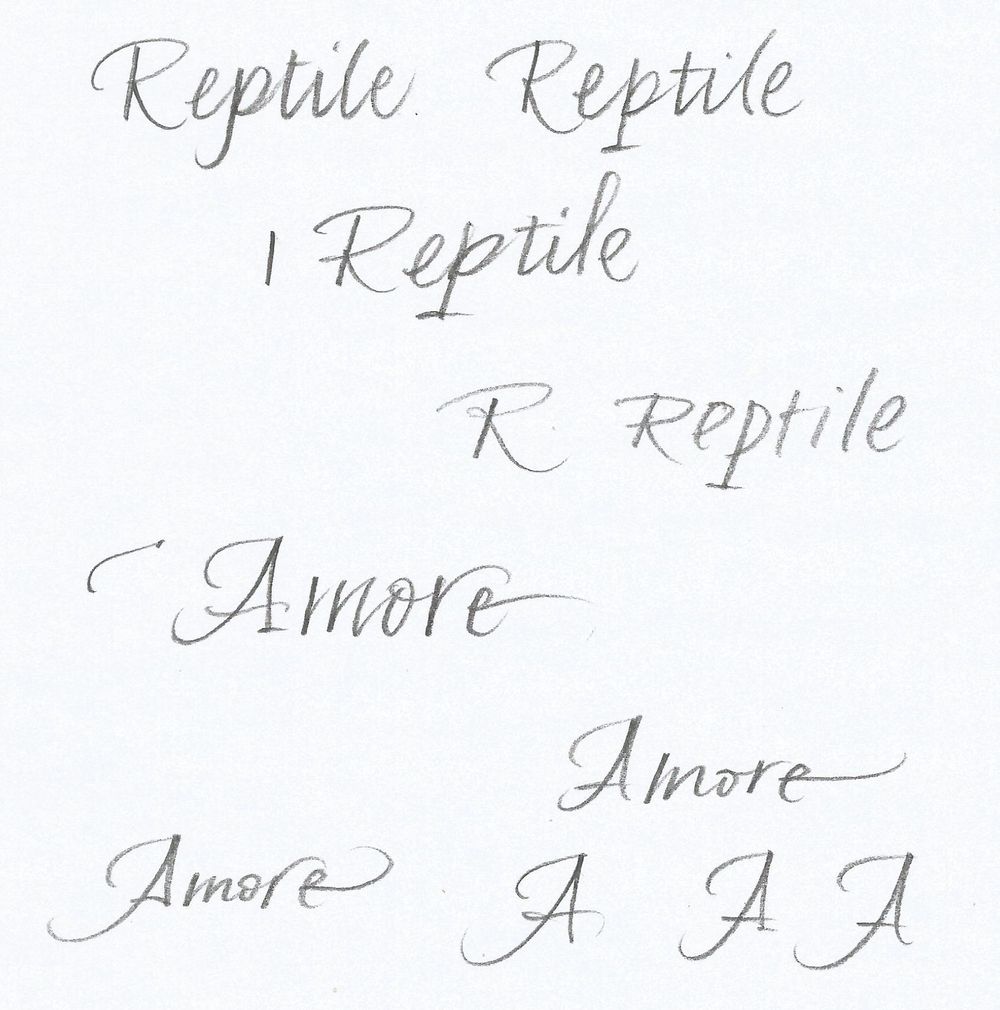 Reptile Reptile
Reptile
R Reptile
Amore
Amore
Amore A A A